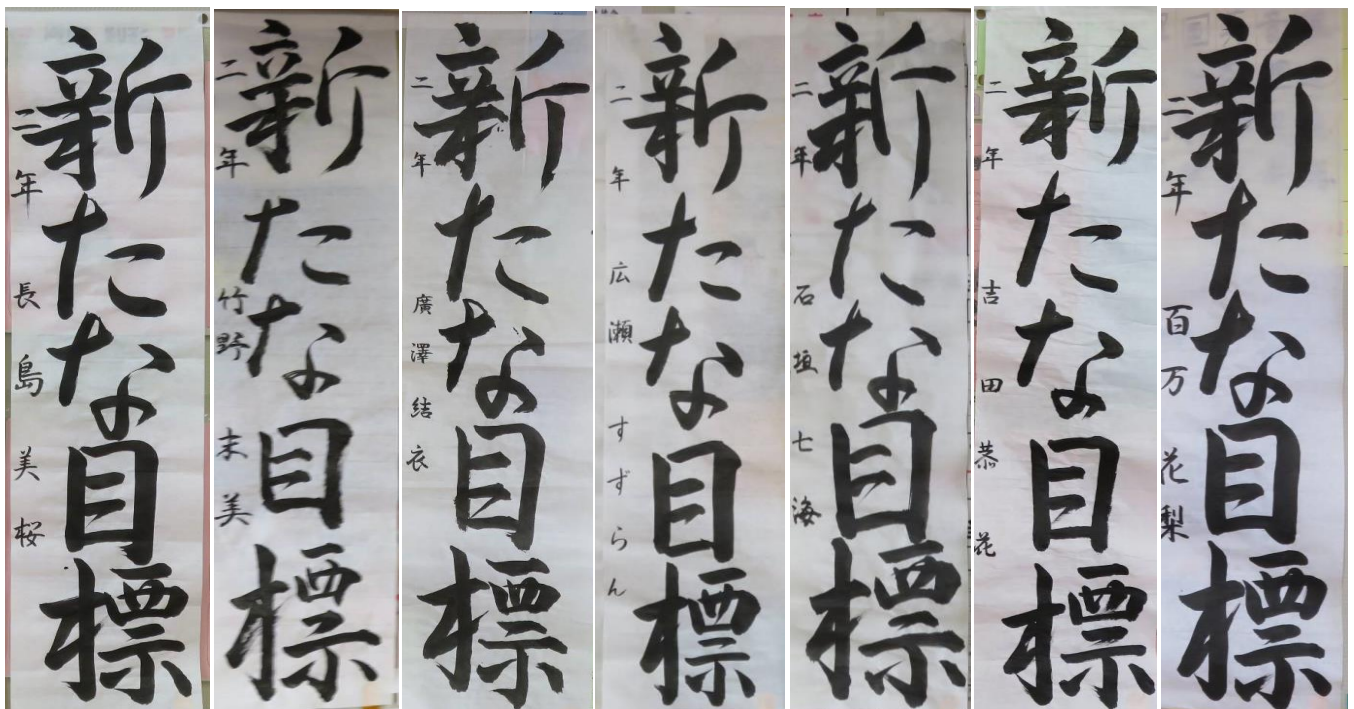 新たな目標
二年 長島美桜
新たな目標
二年 竹野末美
新たな目標
二年 廣澤結衣
新たな目標
二年 広瀬すずらん
新たな目標
二年 石垣七海
新たな目標
二年 吉田恭花
新たな目標
二年 百万花梨